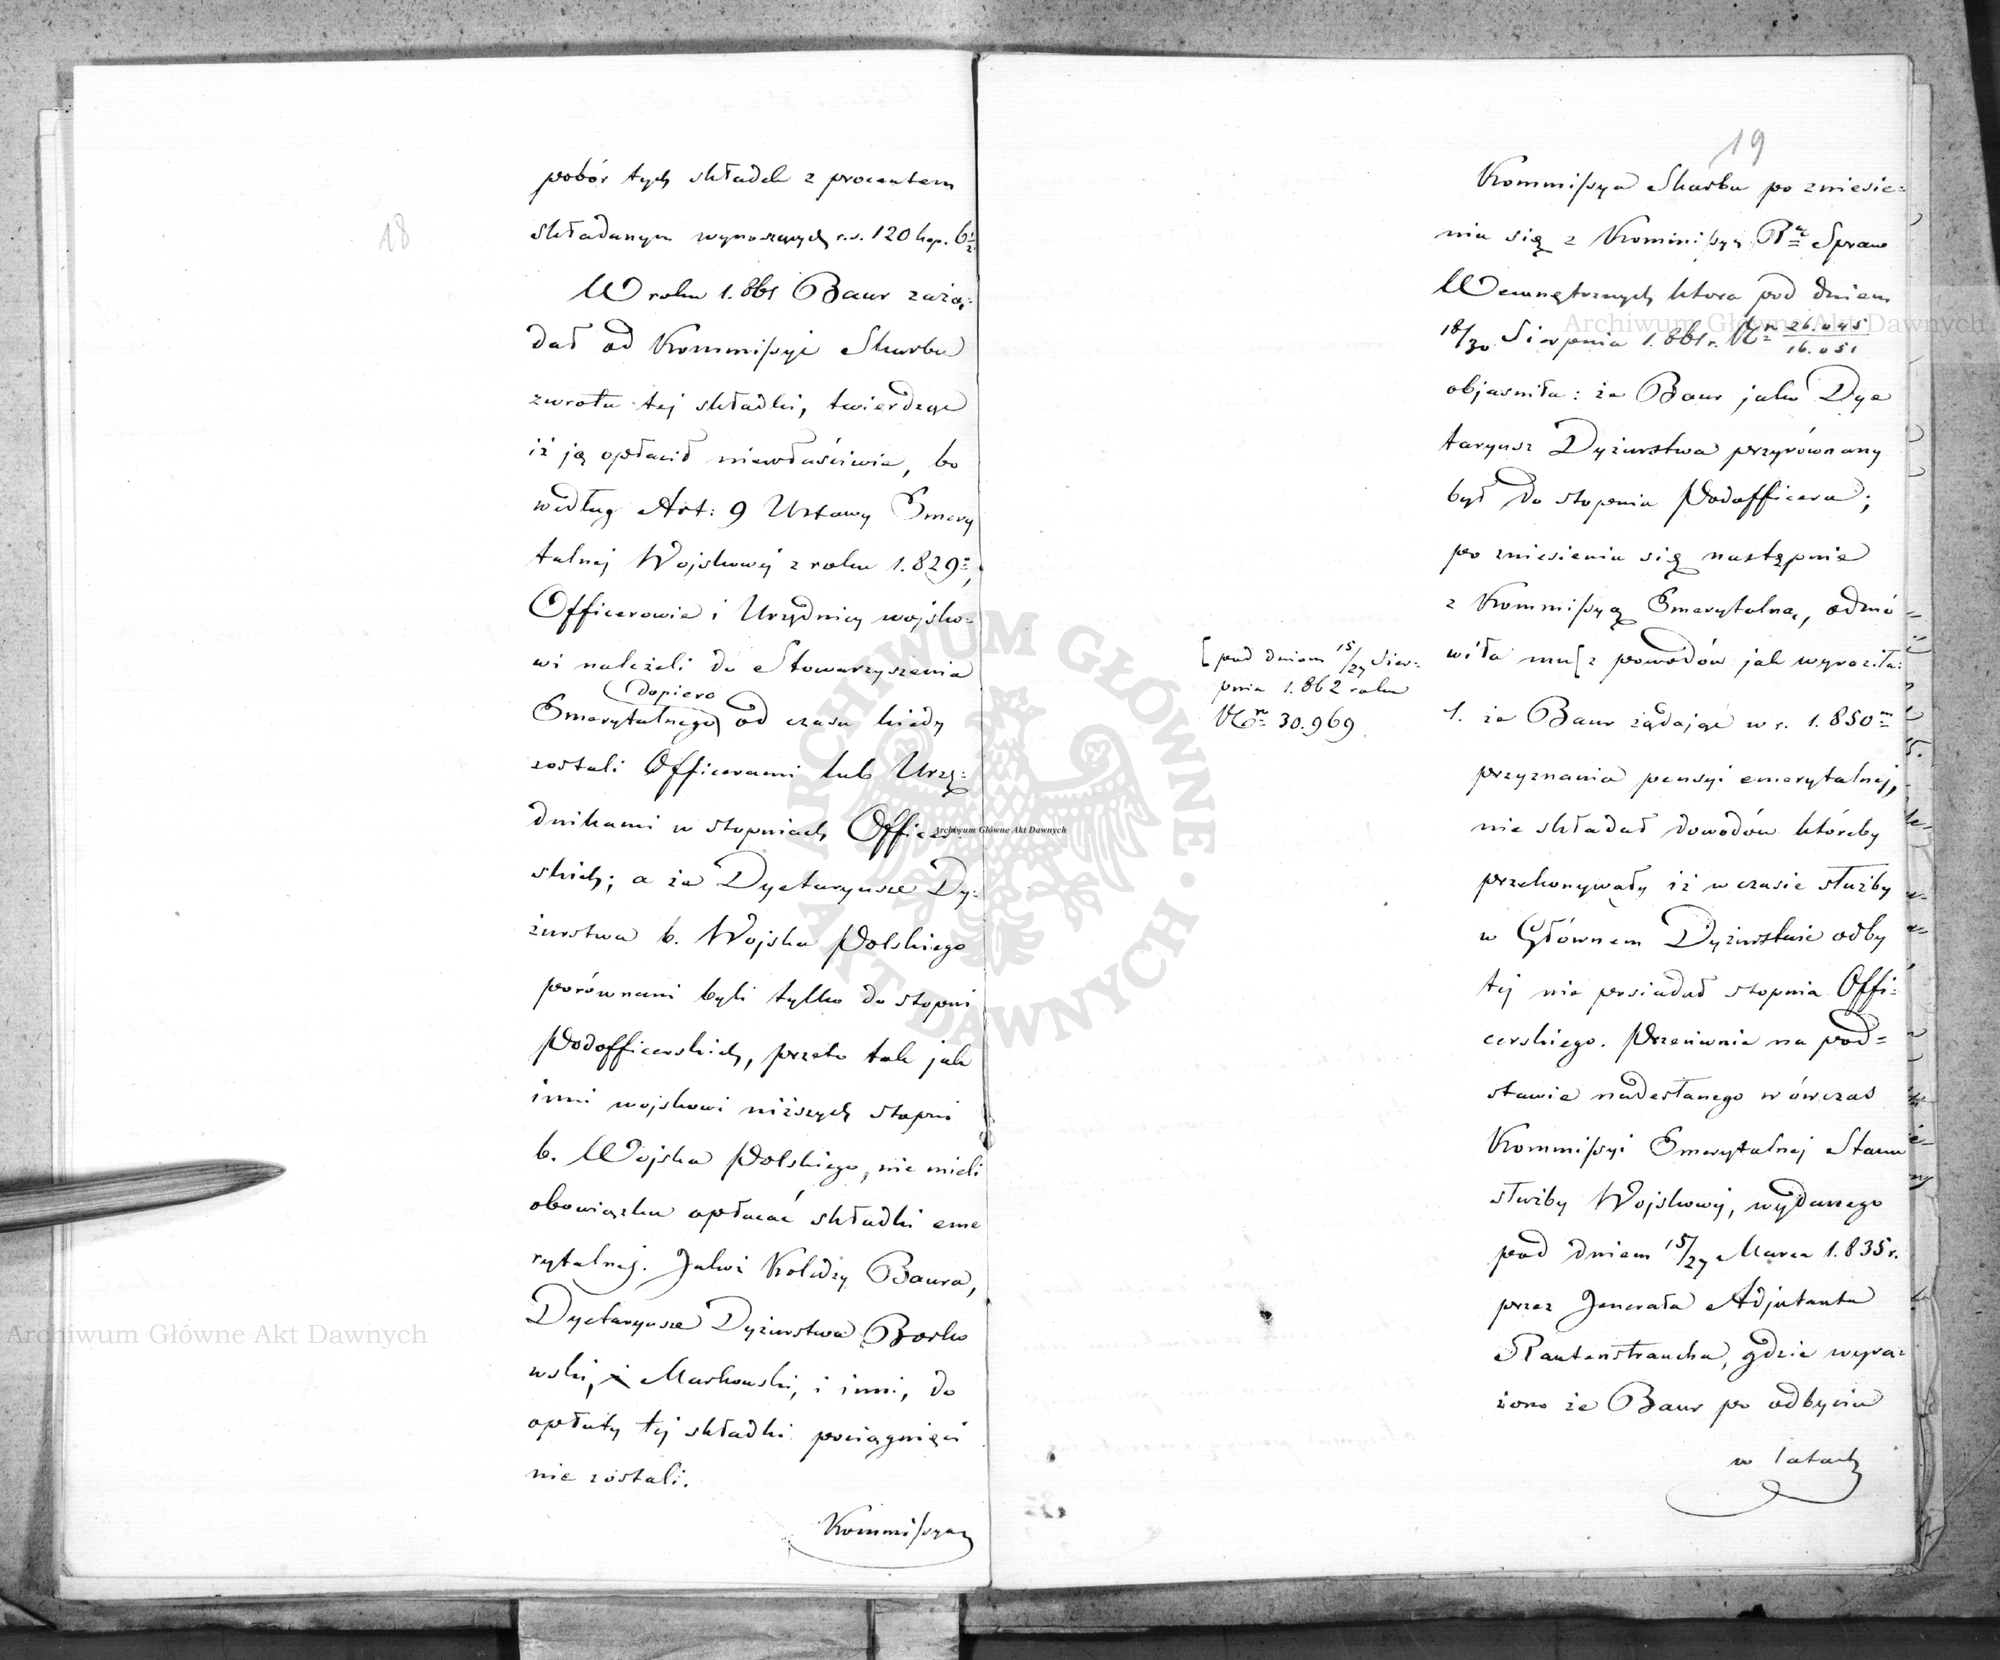 18
pobór tych składek z procentem
składanym wynoszących r.s. 120 kop. 6½
W roku 1.861 Baur zażą=
dał od Kommissyi Skarbu
zwrotu tej składki, twierdząc
iż ją opłacił niewłaściwie, bo
według Art: 9 Ustawy Emery
talnej Wojskowej z roku 1.829=,
Officerowie i Urzędnicy wojsko=
wi należeli do Stowarzyszenia
dopiero
Emerytalnego od czasu kiedy
zostali Officerami lub Urzę=
dnikami w stopniach Officer=
skich; a że Dyetaryusze Dy=
żurstwa b. Wojska Polskiego
porównani byli tylko do stopni
Podofficerskich, przeto tak jak
inni wojskowi niższych stopni
b. Wojska Polskiego, nie mieli
obowiązku opłacać składki eme
rytalnej. Jakoż Koledzy Baura,
Dyetaryusze Dyżurstwa Borko
wski, Markowski, i inni, do
opłaty tej składki pociągnięci
nie zostali.
Kommissya
19
Kommissya Skarbu po zniesie=
niu się z Kommissyą R. Spraw
Wewnętrznych która pod dniem
18/30 Sierpnia 1.861 r. N 26.045/16.051
objasniła: że Baur jako Dye
taryusz Dyżurstwa przyrównany
był do stopnia Podofficera;
po zniesieniu się następnie
z Kommissyą Emerytalną, odmó=
wiła mu [ z powodów jak wyraziła:
[ pod dniem 15/27 Sier=
pnia 1.862 roku
N 30.969
1. że Baur żądając w r. 1.850
przyznania pensyi emerytalnej,
nie składał dowodów któreby
przekonywały iż w czasie służby
w Głównem Dyżurstwie odby
tej nie posiadał stopnia Offi=
cerskiego. Przeciwnie na pod=
stawie nadesłanego wówczas
Kommissyi Emerytalnej Stanu
służby Wojskowej, wydanego
pod dniem 15/27 Marca 1.835 r.
przez Jenerała Adjutanta
Rautenstraucha, gdzie wyra=
żono że Baur po odbyciu
w latach
Archiwum Główne Akt Dawnych
Archiwum Główne Akt Dawnych
Archiwum Główne Akt Dawnych
ARCHIWUM GŁÓWNE AKT DAWNYCH